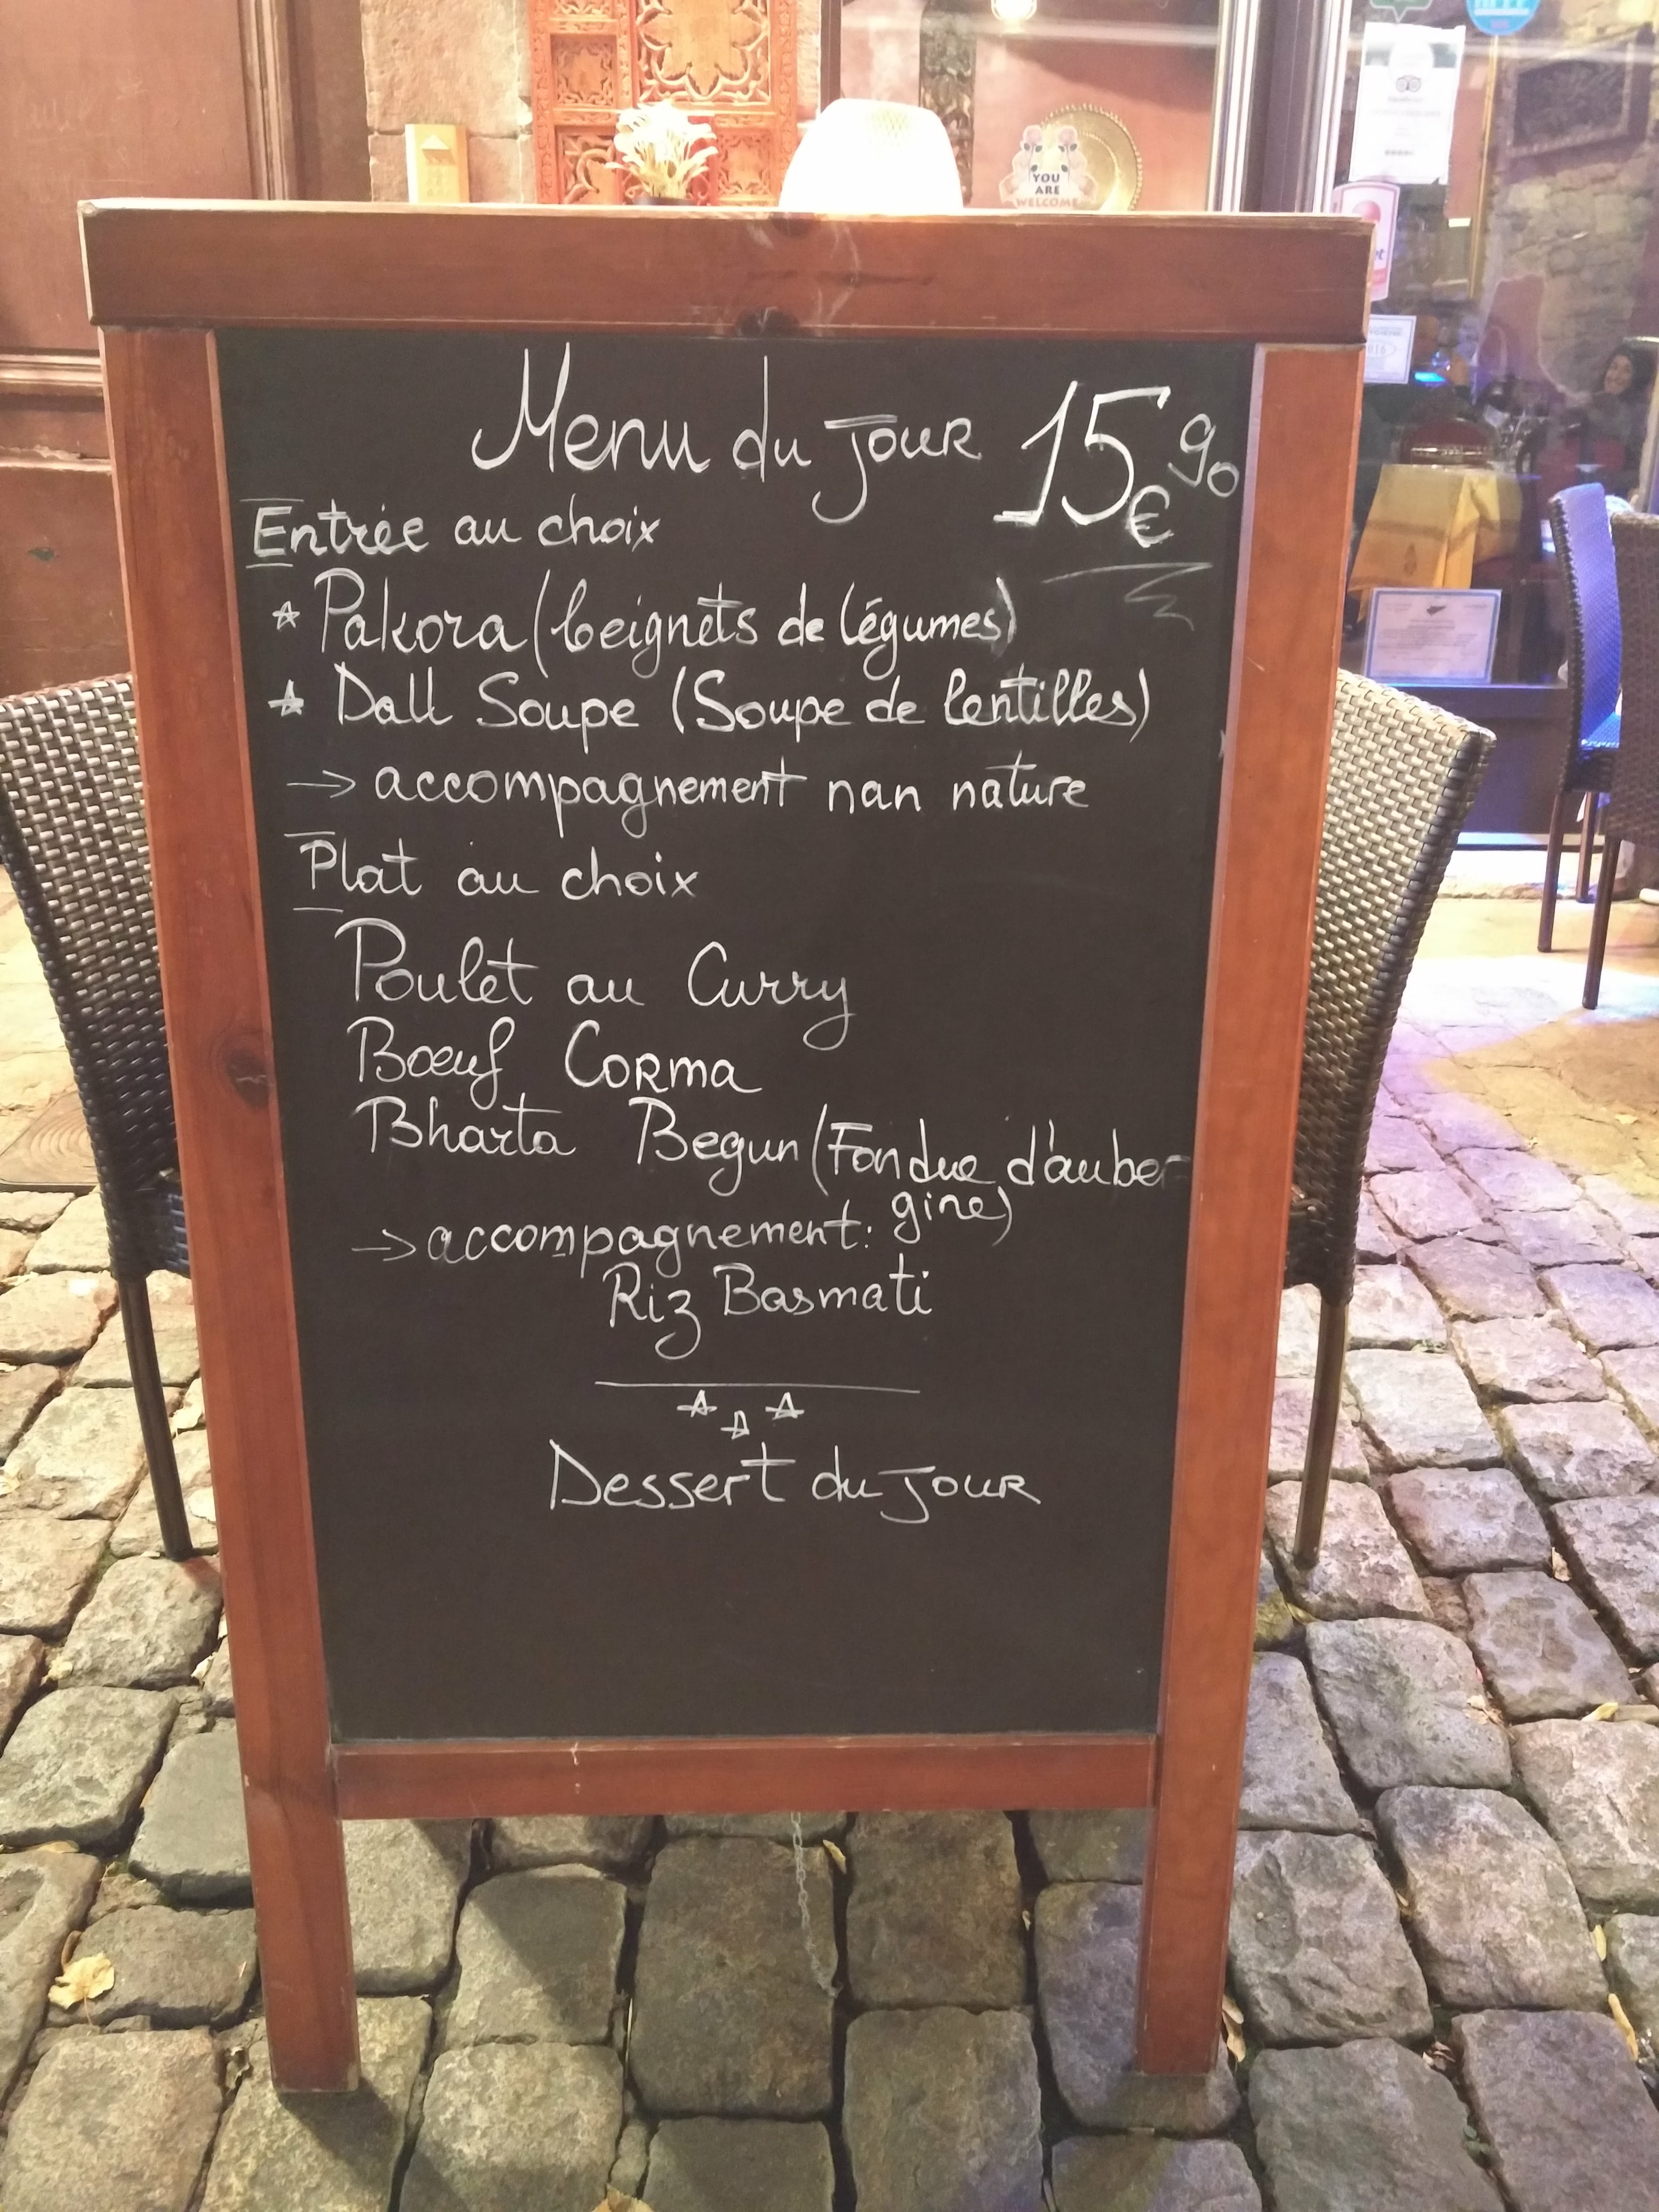 YOU
ARE
WELCOME
Menu du jour 15€90
Entrée au choix
☆ Pakora (beignets de légumes)
☆ Dall Soupe (Soupe de lentilles)
→ accompagnement nan nature
Plat au choix
Poulet au Curry
Bœuf Corma
Bharta Begun (Fondue d'auber-
gine)
→ accompagnement:
Riz Basmati
☆ ☆ ☆
Dessert du jour